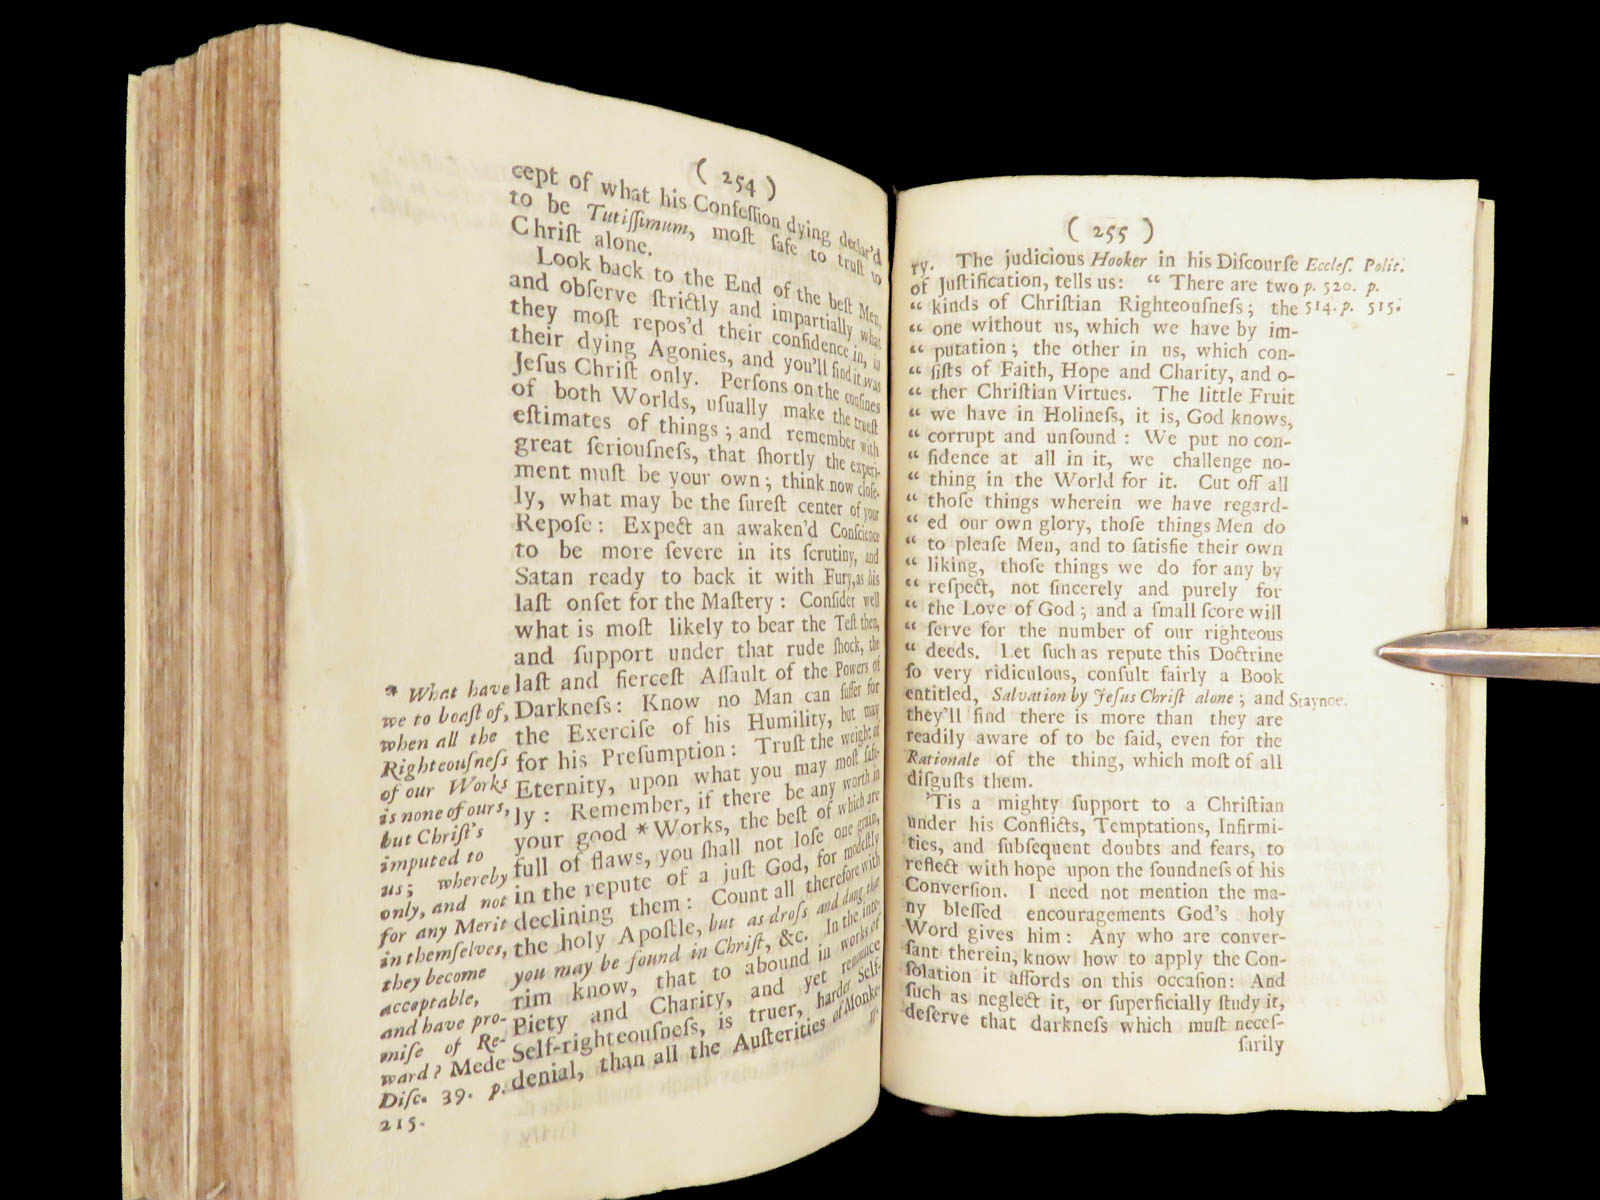 ( 254 )
cept of what his Confeſſion dying declar'd
to be Tutiſſimum, moſt ſafe to truſt to
Chriſt alone.
Look back to the End of the beſt Men,
and obſerve ſtrictly and impartially what
they moſt repos'd their confidence in, in
their dying Agonies, and you'll find it was
Jeſus Chriſt only. Perſons on the confines
of both Worlds, uſually make the trueſt
eſtimates of things; and remember with
great ſeriouſneſs, that ſhortly the experi-
ment muſt be your own; think now cloſe-
ly, what may be the ſureſt center of your
Repoſe: Expect an awaken'd Conſcience
to be more ſevere in its ſcrutiny, and
Satan ready to back it with Fury, as his
laſt onſet for the Maſtery: Conſider well
what is moſt likely to bear the Teſt then,
and ſupport under that rude ſhock, the
laſt and fierceſt Aſſault of the Powers of
Darkneſs: Know no Man can ſuffer for
the Exerciſe of his Humility, but may
for his Preſumption: Truſt the weight of
Eternity, upon what you may moſt ſafe-
ly: Remember, if there be any worth in
your good *Works, the beſt of which are
full of flaws, you ſhall not loſe one grain,
in the repute of a juſt God, for modeſtly
declining them: Count all therefore with
the holy Apoſtle, but as droſs and dung, that
you may be found in Chriſt, &c. In the inte-
rim know, that to abound in works of
Piety and Charity, and yet renounce
Self-righteouſneſs, is truer, harder Self-
denial, than all the Auſterities of Monke-
ry.
* What have
we to boaſt of,
when all the
Righteouſneſs
of our Works
is none of ours,
but Chriſt's
imputed to
us; whereby
only, and not
for any Merit
in themſelves,
they become
acceptable,
and have pro-
miſe of Re-
ward? Mede
Diſc. 39. p.
215.
( 255 )
ry. The judicious Hooker in his Diſcourſe
of Juſtification, tells us: “ There are two
“ kinds of Chriſtian Righteouſneſs; the
“ one without us, which we have by im-
“ putation; the other in us, which con-
“ ſiſts of Faith, Hope and Charity, and o-
“ ther Chriſtian Virtues. The little Fruit
“ we have in Holineſs, it is, God knows,
“ corrupt and unſound: We put no con-
“ fidence at all in it, we challenge no-
“ thing in the World for it. Cut off all
“ thoſe things wherein we have regard-
“ ed our own glory, thoſe things Men do
“ to pleaſe Men, and to ſatisfie their own
“ liking, thoſe things we do for any by
“ reſpect, not ſincerely and purely for
“ the Love of God; and a ſmall ſcore will
“ ſerve for the number of our righteous
“ deeds. Let ſuch as repute this Doctrine
ſo very ridiculous, conſult fairly a Book
entitled, Salvation by Jeſus Chriſt alone; and
they'll find there is more than they are
readily aware of to be ſaid, even for the
Rationale of the thing, which moſt of all
diſguſts them.
'Tis a mighty ſupport to a Chriſtian
under his Conflicts, Temptations, Infirmi-
ties, and ſubſequent doubts and fears, to
reflect with hope upon the ſoundneſs of his
Converſion. I need not mention the ma-
ny bleſſed encouragements God's holy
Word gives him: Any who are conver-
ſant therein, know how to apply the Con-
ſolation it affords on this occaſion: And
ſuch as neglect it, or ſuperficially ſtudy it,
deſerve that darkneſs which muſt neceſ-
ſarily
Eccleſ. Polit.
p. 520. p.
514. p. 515.
Staynoe.